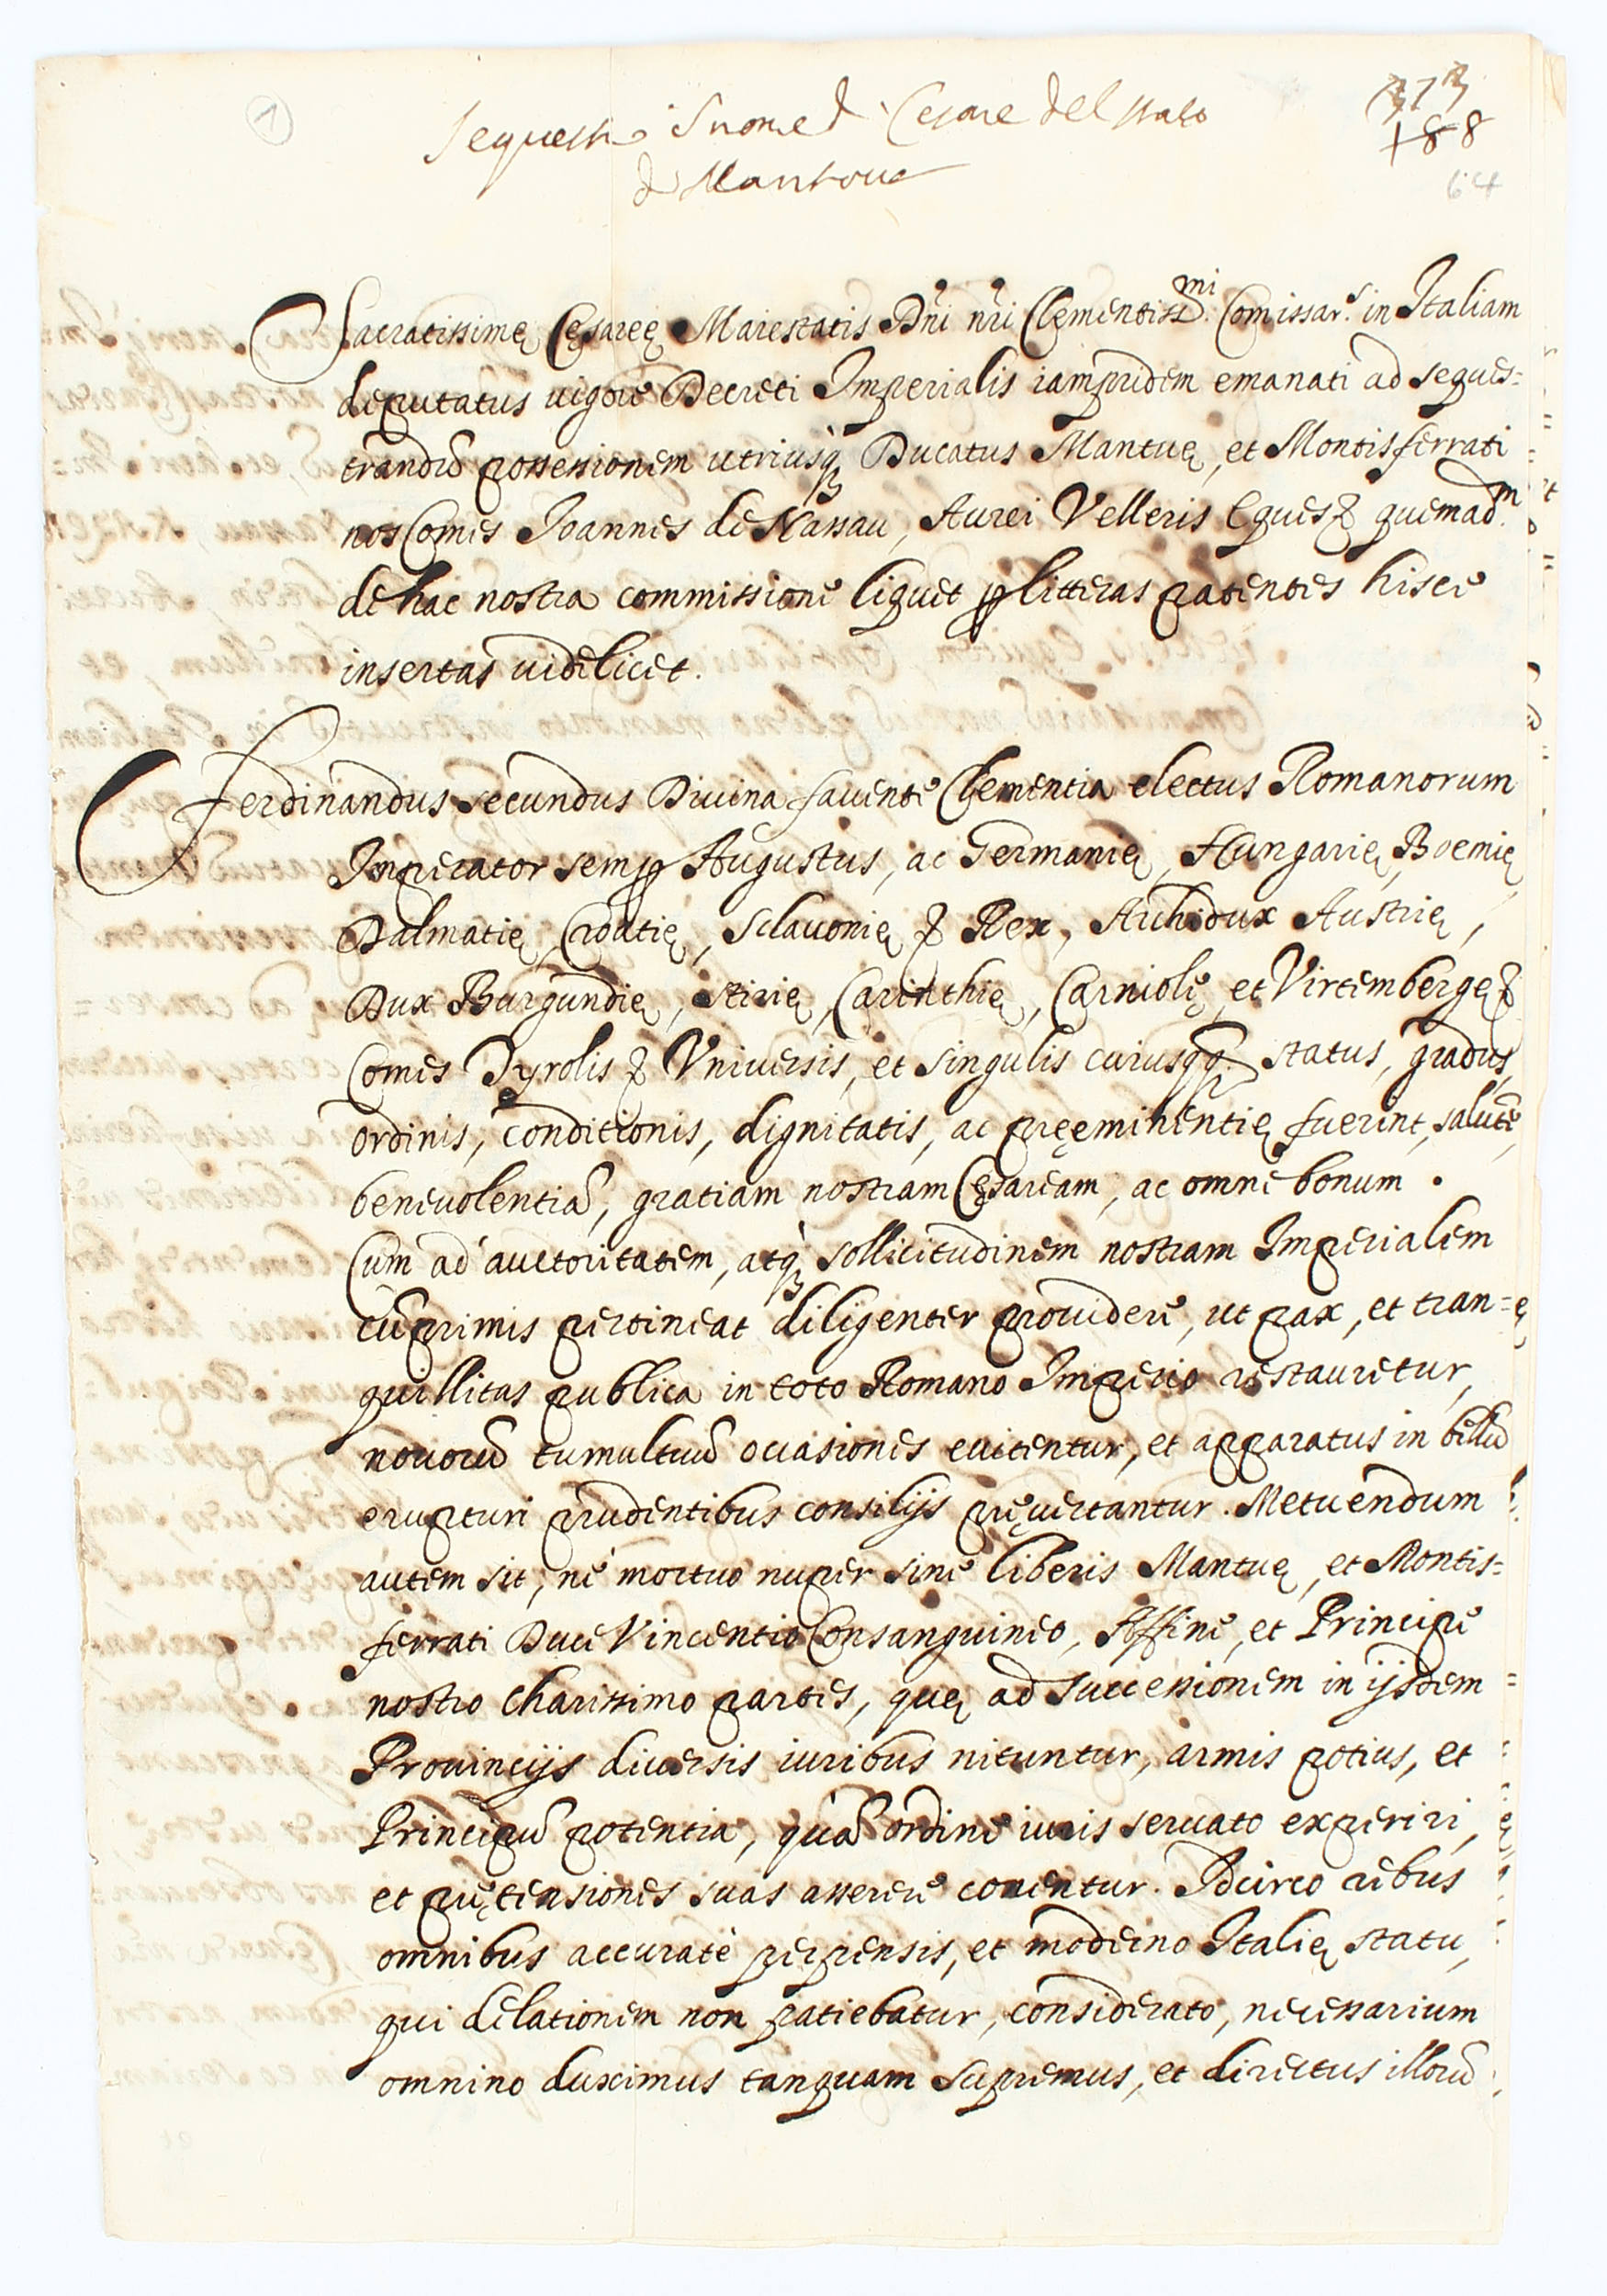 1
373
188
64
Sequestro in nome di Cesare del stato
di Mantoua
Sacratissimę Cęsareę Maiestatis Dn̄i nr̄i Clementiss.mi Comissar.s in Italiam
deputatus uigore Decreti Imperialis iampridem emanati ad seques=
trandū possessionem utriusq̀ Ducatus Mantuę, et Montisferrati
nos Comes Joannes de Nassau, Aurei Velleris Eques & quemad.m
de hac nostra commissione liquet ꝑ litteras patentes hisce
insertas uidelicet.
Ferdinandus secundus Diuina fauente Clementia electus Romanorum
Imperator semꝑ Augustus, ac Germanię, Hungarię, Boemię
Dalmatię, Croatię, Sclauonię & Rex, Archidux Austrię,
Dux Burgundię, Stirię, Carinthię, Carniolę, et Virtembergę &
Comes Tyrolis & Vniuersis, et singulis cuiusqq. status, gradus,
ordinis, conditionis, dignitatis, ac pręeminentię fuerint, salutē,
beneuolentiā, gratiam nostram Cęsaream, ac omne bonum.
Cum ad auctoritatem, atq̀ sollicitudinem nostram Imperialem
cūprimis pertineat diligenter prouidere, ut pax, et tran=
quillitas publica in toto Romano Imperio restauretur,
nouorū tumultuū occasiones euitentur, et apparatus in bellū
erupturi prudentibus consilijs pręuertantur. Metuendum
autem sit, ne mortuo nuper sine liberis Mantuę, et Montis=
ferrati Duce Vincentio Consanguineo, Affine, et Principe
nostro charissimo partes, quę ad successionem in ijsdem
Prouincijs diuersis iuribus nituntur, armis potius, et
Principū potentia, quā ordine iuris seruato experiri,
et prętensiones suas asserere conentur. Idcirco rebus
omnibus accuratè perpensis, et moderno Italię statu,
qui dilationem non patiebatur, considerato, necessarium
omnino duximus tanquam supremus, et directus illorū